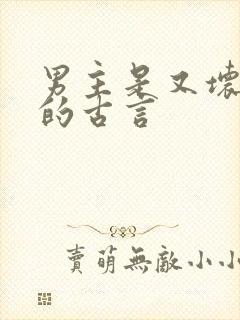 男主是又壞
的古言
賣萌無敵小小